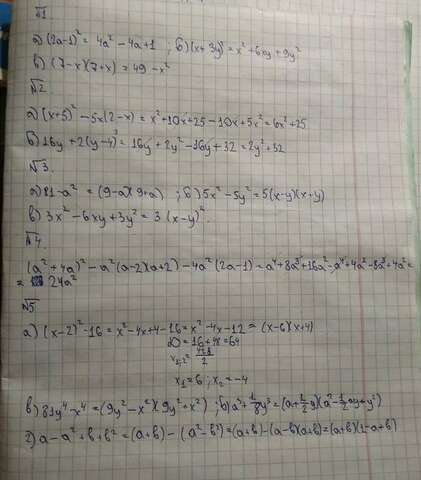 №1
а) (2a-1)² = 4a² - 4a + 1 ; б) (x + 3y)² = x² + 6xy + 9y²
в) (7-x)(7+x) = 49 - x²
№2
а) (x+5)² - 5x(2-x) = x² + 10x + 25 - 10x + 5x² = 6x² + 25
б) 16y + 2(y-4)² = 16y + 2y² - 16y + 32 = 2y² + 32
№3.
а) 81 - a² = (9-a)(9+a) ; б) 5x² - 5y² = 5(x-y)(x+y)
в) 3x² - 6xy + 3y² = 3(x-y)².
№4.
(a² + 4a)² - a²(a-2)(a+2) - 4a²(2a-1) = a⁴ + 8a³ + 16a² - a⁴ + 4a² - 8a³ + 4a² =
= 24a²
№5
а) (x-2)² - 16 = x² - 4x + 4 - 16 = x² - 4x - 12 = (x-6)(x+4)
D = 16 + 48 = 64
x₁,₂ = 4±8 / 2
x₁ = 6 ; x₂ = -4
в) 81y⁴ - x⁴ = (9y² - x²)(9y² + x²) ; б) a³ + 1/8 y³ = (a + 1/2 y)(a² - 1/2 ay + y²)
г) a - a² + b + b² = (a+b) - (a² - b²) = (a+b) - (a-b)(a+b) = (a+b)(1-a+b)